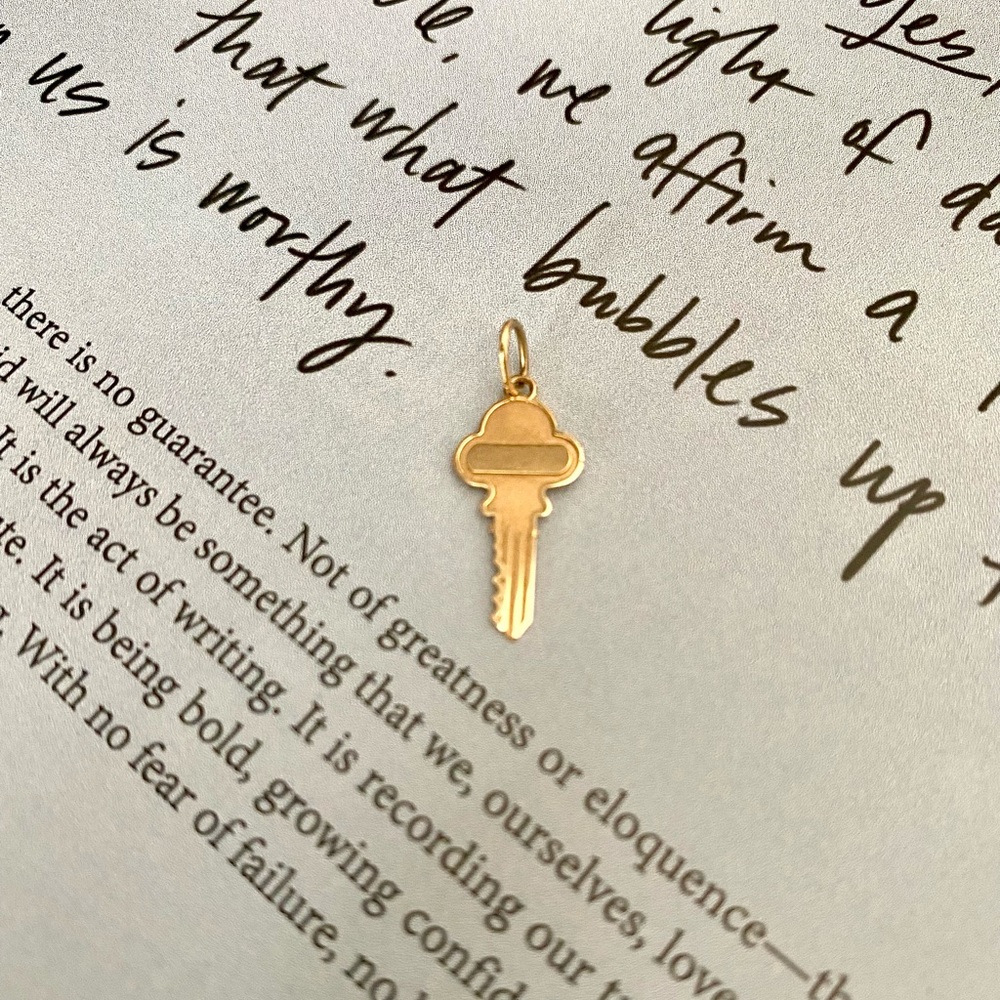 yes,
light of da
le, we affirm a
that what bubbles up
us is worthy.
there is no guarantee. Not of greatness or eloquence—th
id will always be something that we, ourselves, love
It is the act of writing. It is recording our t
te. It is being bold, growing confid
With no fear of failure, no